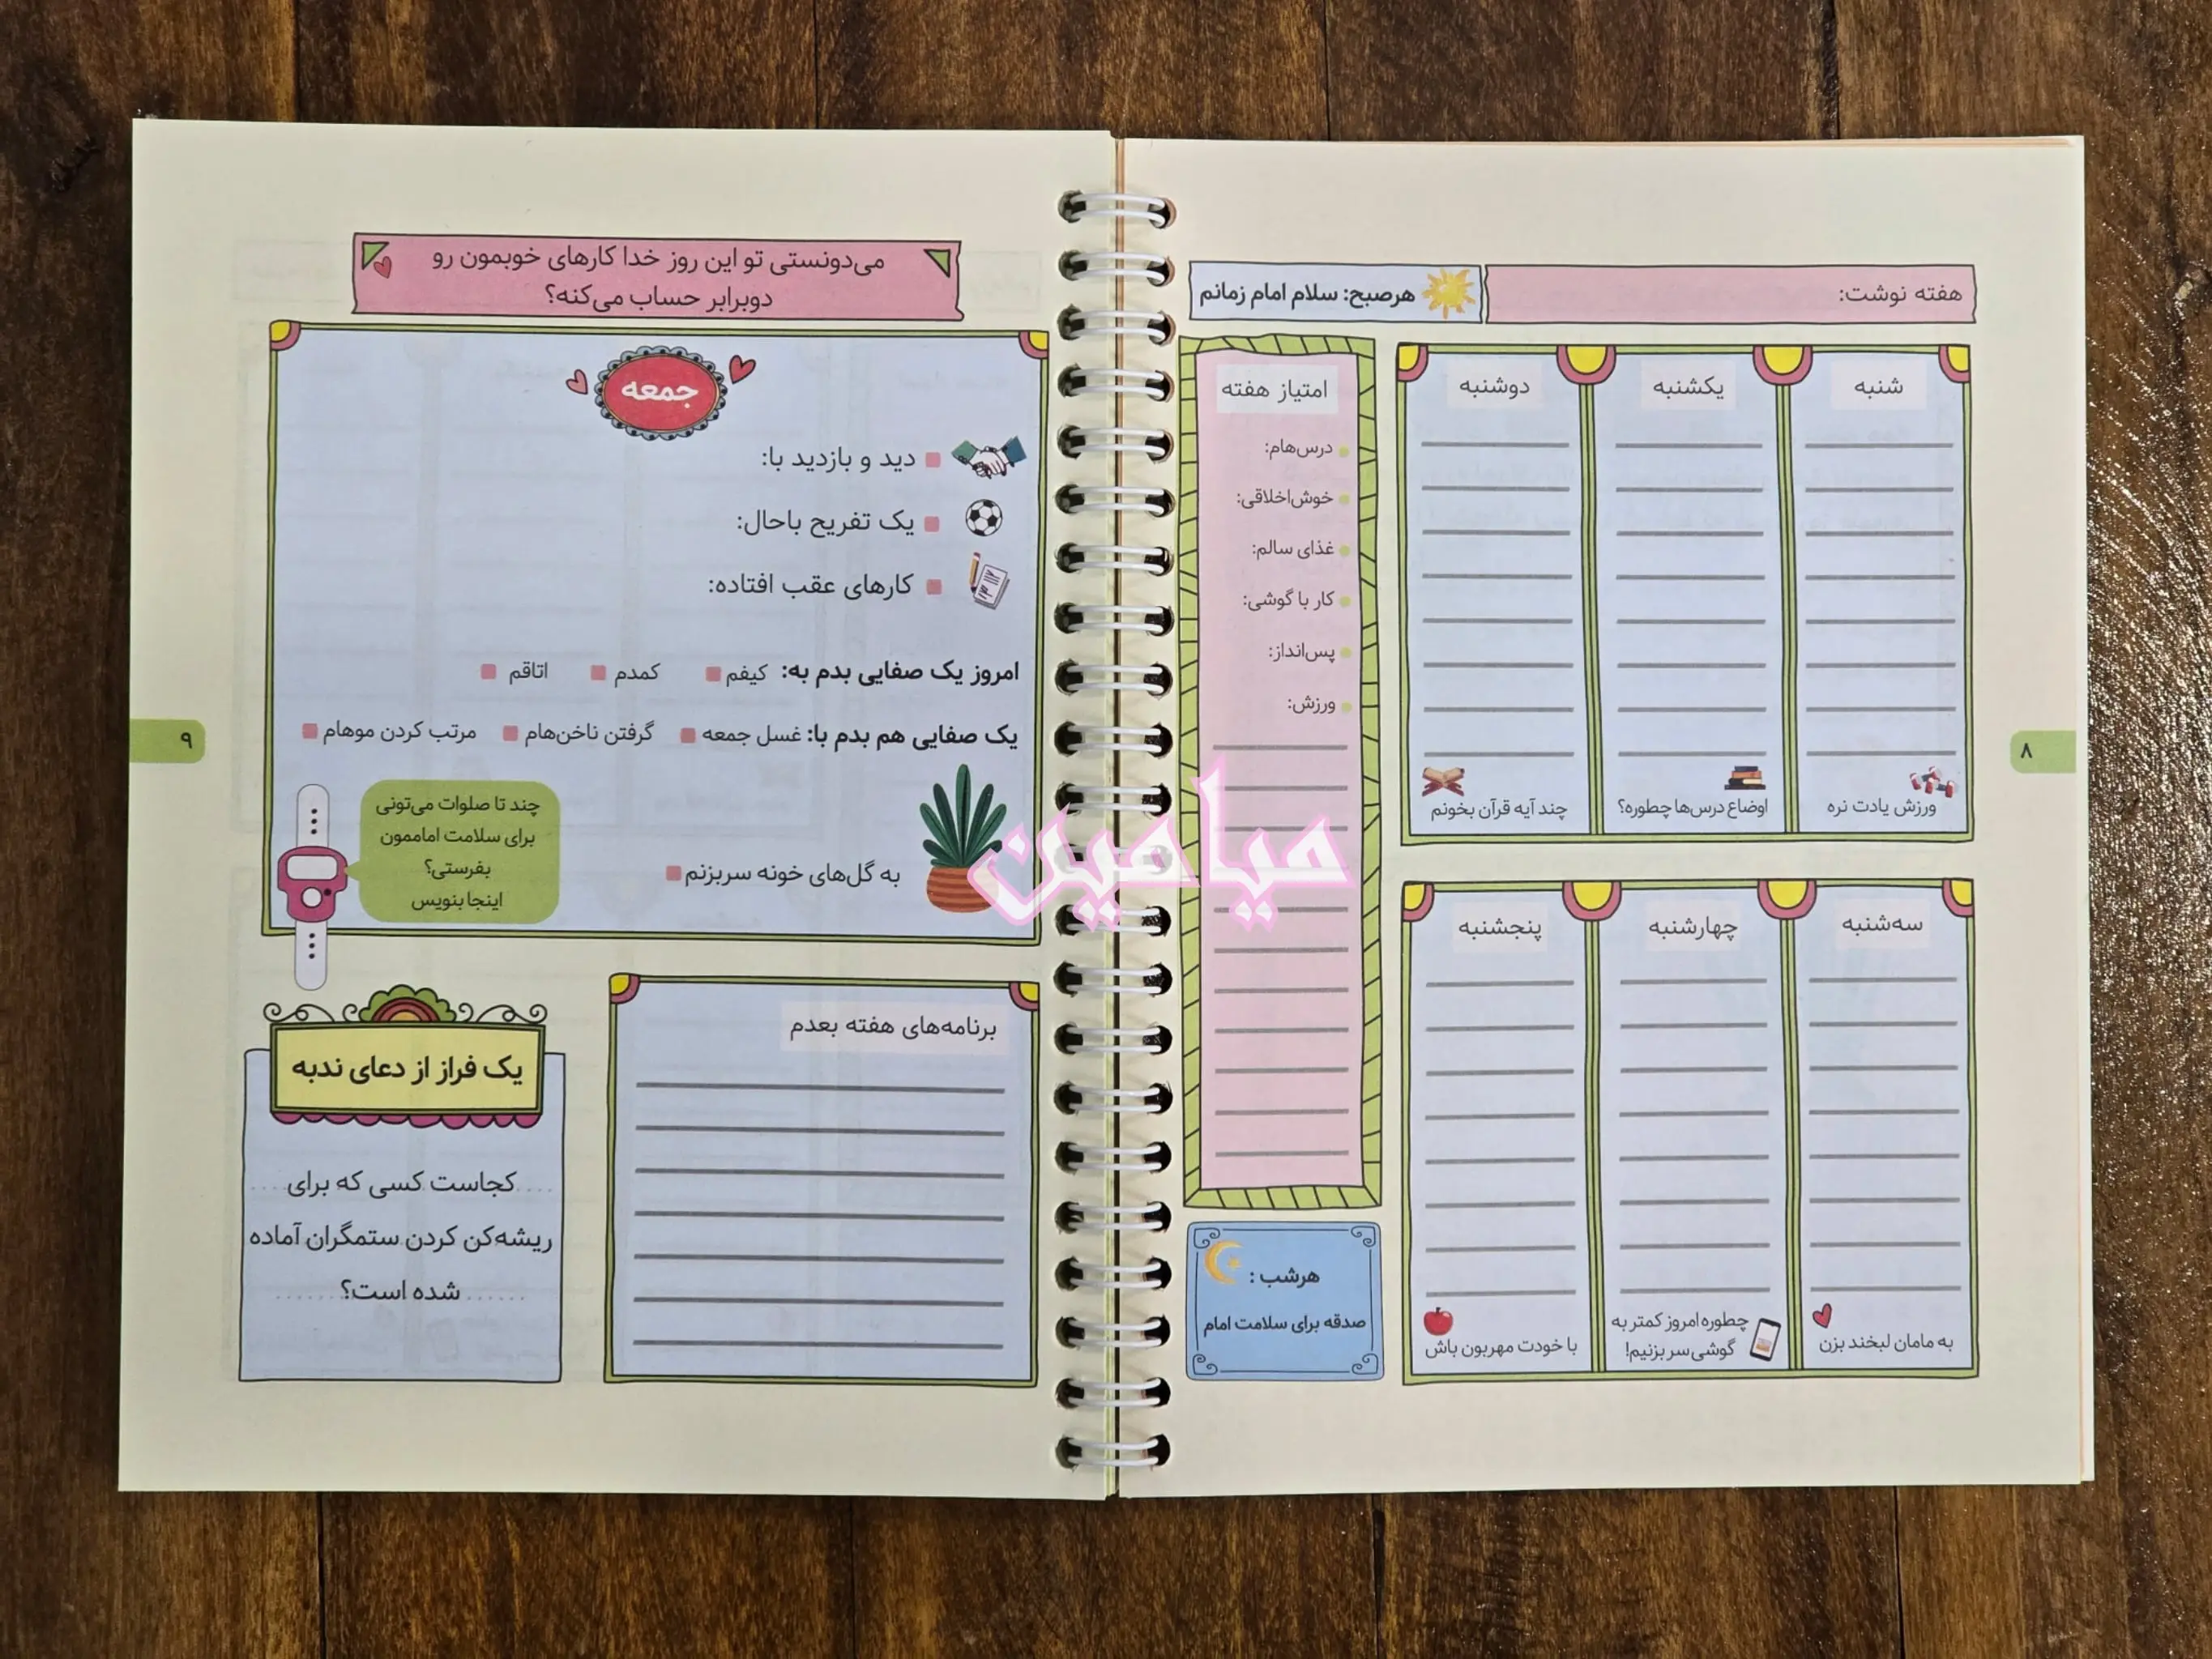 هفته نوشت:
هرصبح: سلام امام زمانم
شنبه
ورزش یادت نره
یکشنبه
اوضاع درس‌ها چطوره؟
دوشنبه
چند آیه قرآن بخونم
سه‌شنبه
به مامان لبخند بزن
چهارشنبه
چطوره امروز کمتر به
گوشی سر بزنیم!
پنجشنبه
با خودت مهربون باش
امتیاز هفته
درس‌هام:
خوش‌اخلاقی:
غذای سالم:
کار با گوشی:
پس‌انداز:
ورزش:
هرشب :
صدقه برای سلامت امام
۸
میامین
می‌دونستی تو این روز خدا کارهای خوبمون رو
دوبرابر حساب می‌کنه؟
جمعه
دید و بازدید با:
یک تفریح باحال:
کارهای عقب افتاده:
امروز یک صفایی بدم به: کیفم کمدم اتاقم
یک صفایی هم بدم با: غسل جمعه گرفتن ناخن‌هام مرتب کردن موهام
به گل‌های خونه سربزنم
چند تا صلوات می‌تونی
برای سلامت اماممون
بفرستی؟
اینجا بنویس
برنامه‌های هفته بعدم
یک فراز از دعای ندبه
....کجاست کسی که برای....
ریشه‌کن کردن ستمگران آماده
......شده است؟.......
۹